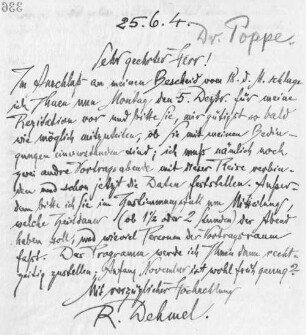 336
25.6.4.
Dr. Poppe.
Sehr geehrter Herr!
Im Anschluß an meinen Bescheid vom 18. d. M. schlage
ich Ihnen nun Montag den 5. Dezbr. für meine
Rezitation vor und bitte Sie, mir gütigst so bald
wie möglich mitzuteilen, ob Sie mit meinen Bedin-
gungen einverstanden sind; ich muß nämlich noch
zwei andre Vortragsabende mit dieser Reise verbin-
den und schon jetzt die Daten feststellen. Außer-
dem bitte ich Sie im um Mitteilung,
welche Zeitdauer (ob 1½ oder 2 Stunden) der Abend
haben soll, und wieviel Personen der Vortragsraum
faßt. Das Programm werde ich Ihnen dann recht-
zeitig zustellen; Anfang November ist wohl früh genug?
Mit vorzüglicher Hochachtung
R. Dehmel.